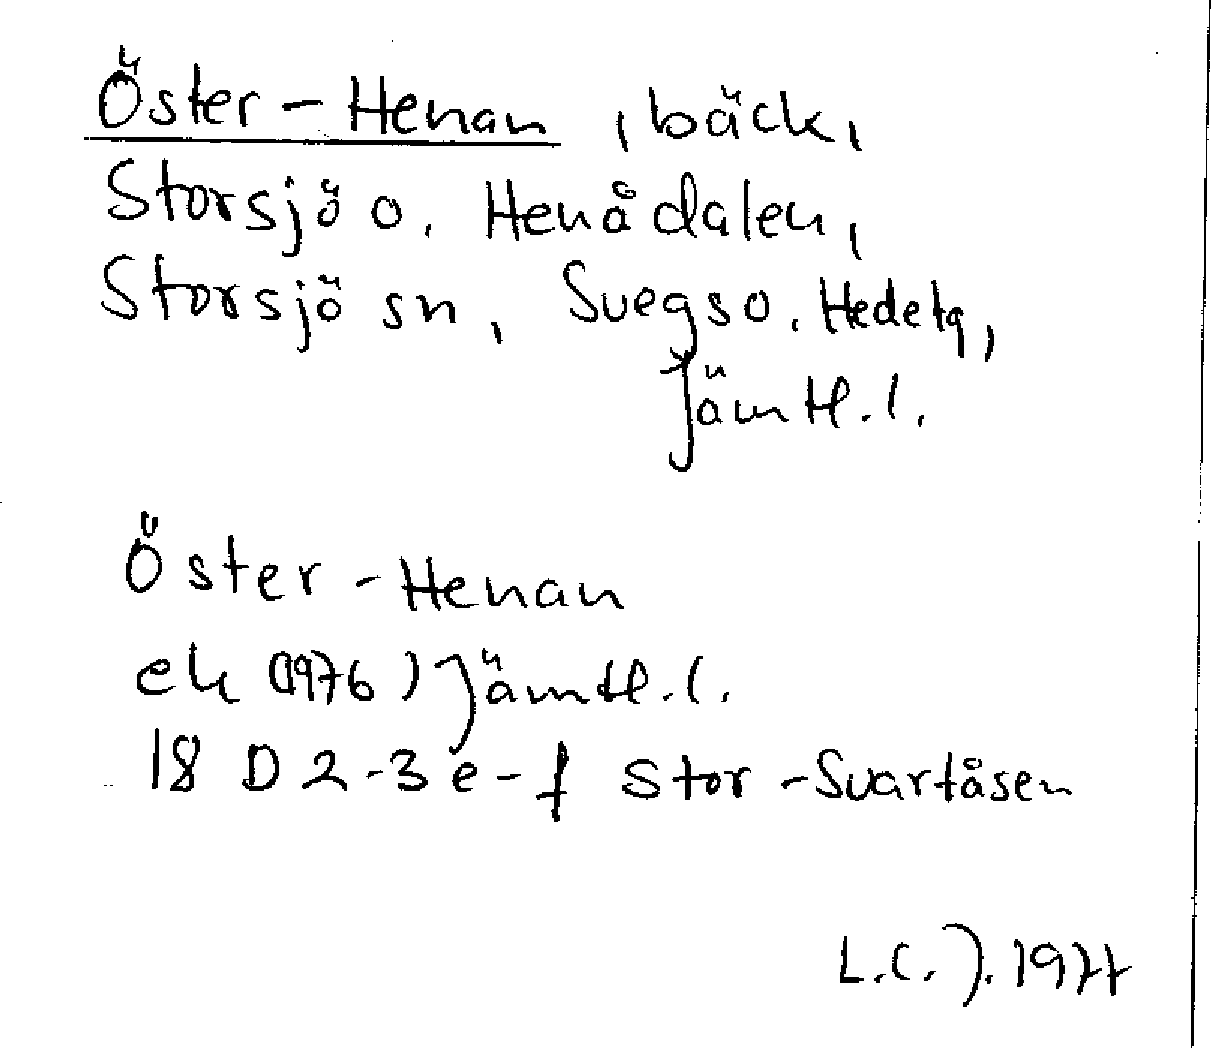 Öster-Henan, bäck,
Storsjö o. Henådalen,
Storsjö sn, Svegs o. Hede tg,
Jämtl.l.
Öster-Henan
ek (1976) Jämtl.l.
18 D 2-3 e-f Stor-Svartåsen
L.C.J. 1977